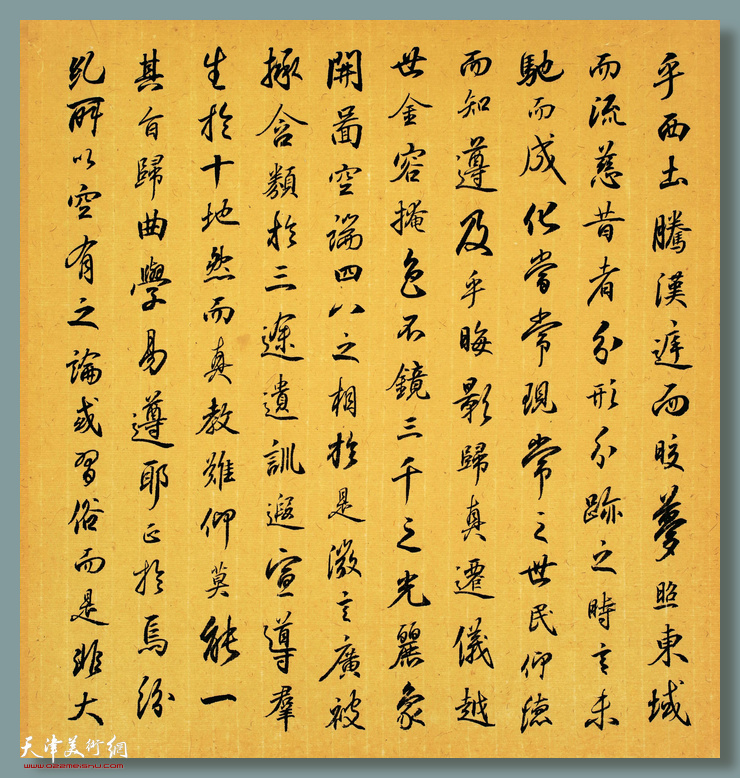 乎西土騰漢庭而皎夢照東域
而流慈昔者分形分跡之時言未
馳而成化當常現常之世民仰德
而知遵及乎晦影歸真遷儀越
世金容掩色不鏡三千之光麗象
開圖空端四八之相於是微言廣被
拯含類於三途遺訓遐宣導羣
生於十地然而真教難仰莫能一
其旨歸曲學易遵耶正於焉紛
糺所以空有之論或習俗而是非大
天津美術網
www.022meishu.com